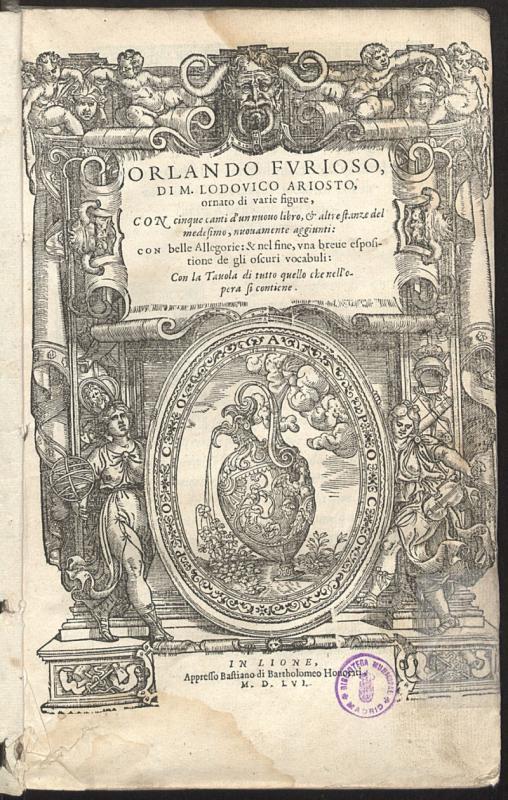 ORLANDO FVRIOSO,
DI M. LODOVICO ARIOSTO,
ornato di varie figure,
CON cinque canti d'un nuouo libro, & altre stanze del
medesimo, nuouamente aggiunti:
CON belle Allegorie: & nel fine, vna breue esposi-
tione de gli oscuri vocabuli:
Con la Tauola di tutto quello che nell'o-
pera si contiene.
POCO A POCO
IN LIONE,
Appresso Bastiano di Bartholomeo Honorati.
M. D. LVI.
BIBLIOTECA MUNICIPAL
MADRID